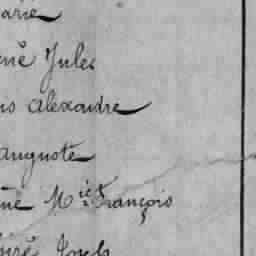 arie
ené Jules
is Alexandre
auguste
né M.iex François
iré Joseph